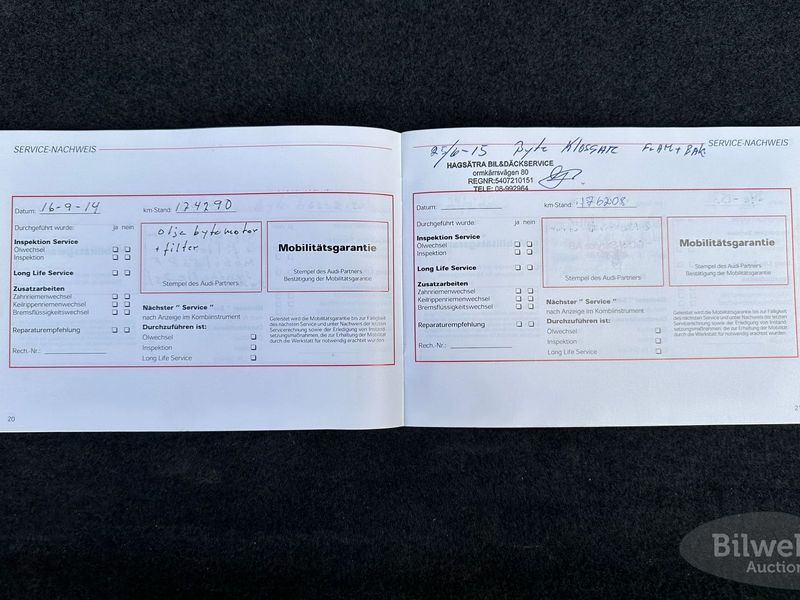 SERVICE-NACHWEIS
Datum: 16-9-14
km-Stand: 174290
Durchgeführt wurde: ja nein
olje byte motor
+ filter
Stempel des Audi-Partners
Inspektion Service
Ölwechsel
Inspektion
Long Life Service
Zusatzarbeiten
Zahnriemenwechsel
Keilrippenriemenwechsel
Bremsflüssigkeitswechsel
Reparaturempfehlung
Rech.-Nr.:
Mobilitätsgarantie
Stempel des Audi-Partners
Bestätigung der Mobilitätsgarantie
Nächster " Service "
nach Anzeige im Kombiinstrument
Durchzuführen ist:
Ölwechsel
Inspektion
Long Life Service
Geleistet wird die Mobilitätsgarantie bis zur Fälligkeit
des nächsten Service und unter Nachweis der letzten
Servicerechnung sowie der Erledigung von Instand
setzungsmaßnahmen, die zur Erhaltung der Mobilität
durch die Werkstatt für notwendig erachtet wurden.
20
SERVICE-NACHWEIS
25/6-15 Byte Klossar FRAM + BAK
HAGSÄTRA BIL&DÄCKSERVICE
ormkärrsvägen 80
REGNR:5407210151
TELE: 08-992964
Datum:
km-Stand: 176208
Durchgeführt wurde: ja nein
Stempel des Audi-Partners
Inspektion Service
Ölwechsel
Inspektion
Long Life Service
Zusatzarbeiten
Zahnriemenwechsel
Keilrippenriemenwechsel
Bremsflüssigkeitswechsel
Reparaturempfehlung
Rech.-Nr.:
Mobilitätsgarantie
Stempel des Audi-Partners
Bestätigung der Mobilitätsgarantie
Nächster " Service "
nach Anzeige im Kombiinstrument
Durchzuführen ist:
Ölwechsel
Inspektion
Long Life Service
Geleistet wird die Mobilitätsgarantie bis zur Fälligkeit
des nächsten Service und unter Nachweis der letzten
Servicerechnung sowie der Erledigung von Instand
setzungsmaßnahmen, die zur Erhaltung der Mobilität
durch die Werkstatt für notwendig erachtet wurden.
Auction